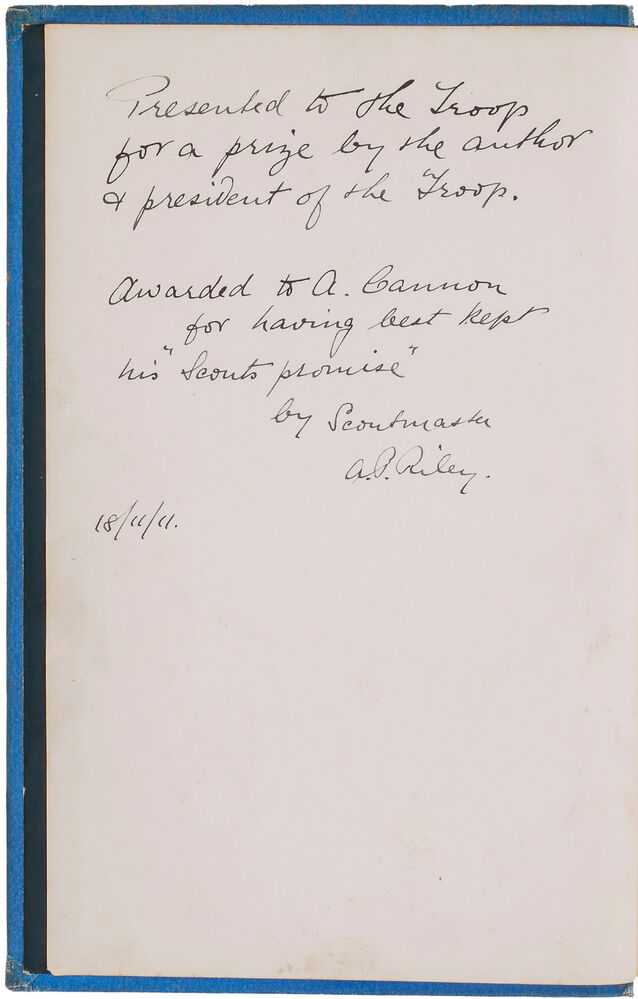 Presented to the Troop
for a prize by the author
& president of the Troop.
Awarded to A. Cannon
for having best kept
his "Scouts promise"
by Scoutmaster
A.P. Riley.
18/11/11.